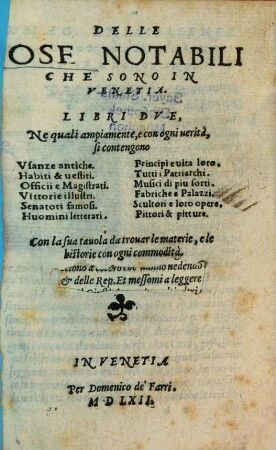 DELLE
OSE NOTABILI
CHE SONO IN
VENETIA.
LIBRI DVE,
Ne quali ampiamente, e con ogni uerità,
si contengono
Vsanze antiche.
Habiti & uestiti.
Officii e Magistrati.
Vittorie illustri.
Senatori famosi.
Huomini letterati.
Principi e uita loro.
Tutti i Patriarchi.
Musici di piu sorti.
Fabriche e Palazzi.
Scultori e loro opere.
Pittori & pitture.
Con la sua tauola da trouar le materie, e le
historie con ogni commodità.
& delle Rep. Et messomi a leggere
IN VENETIA
Per Domenico de' Farri.
M D LXII.